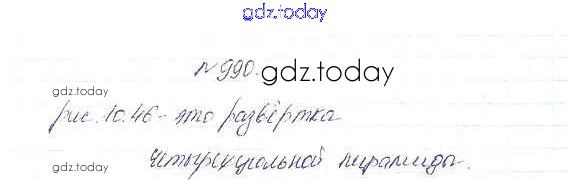 gdz.today
№990. gdz.today
gdz.today
рис. 10.46 - это развёртка
четырёхугольной пирамиды.
gdz.today